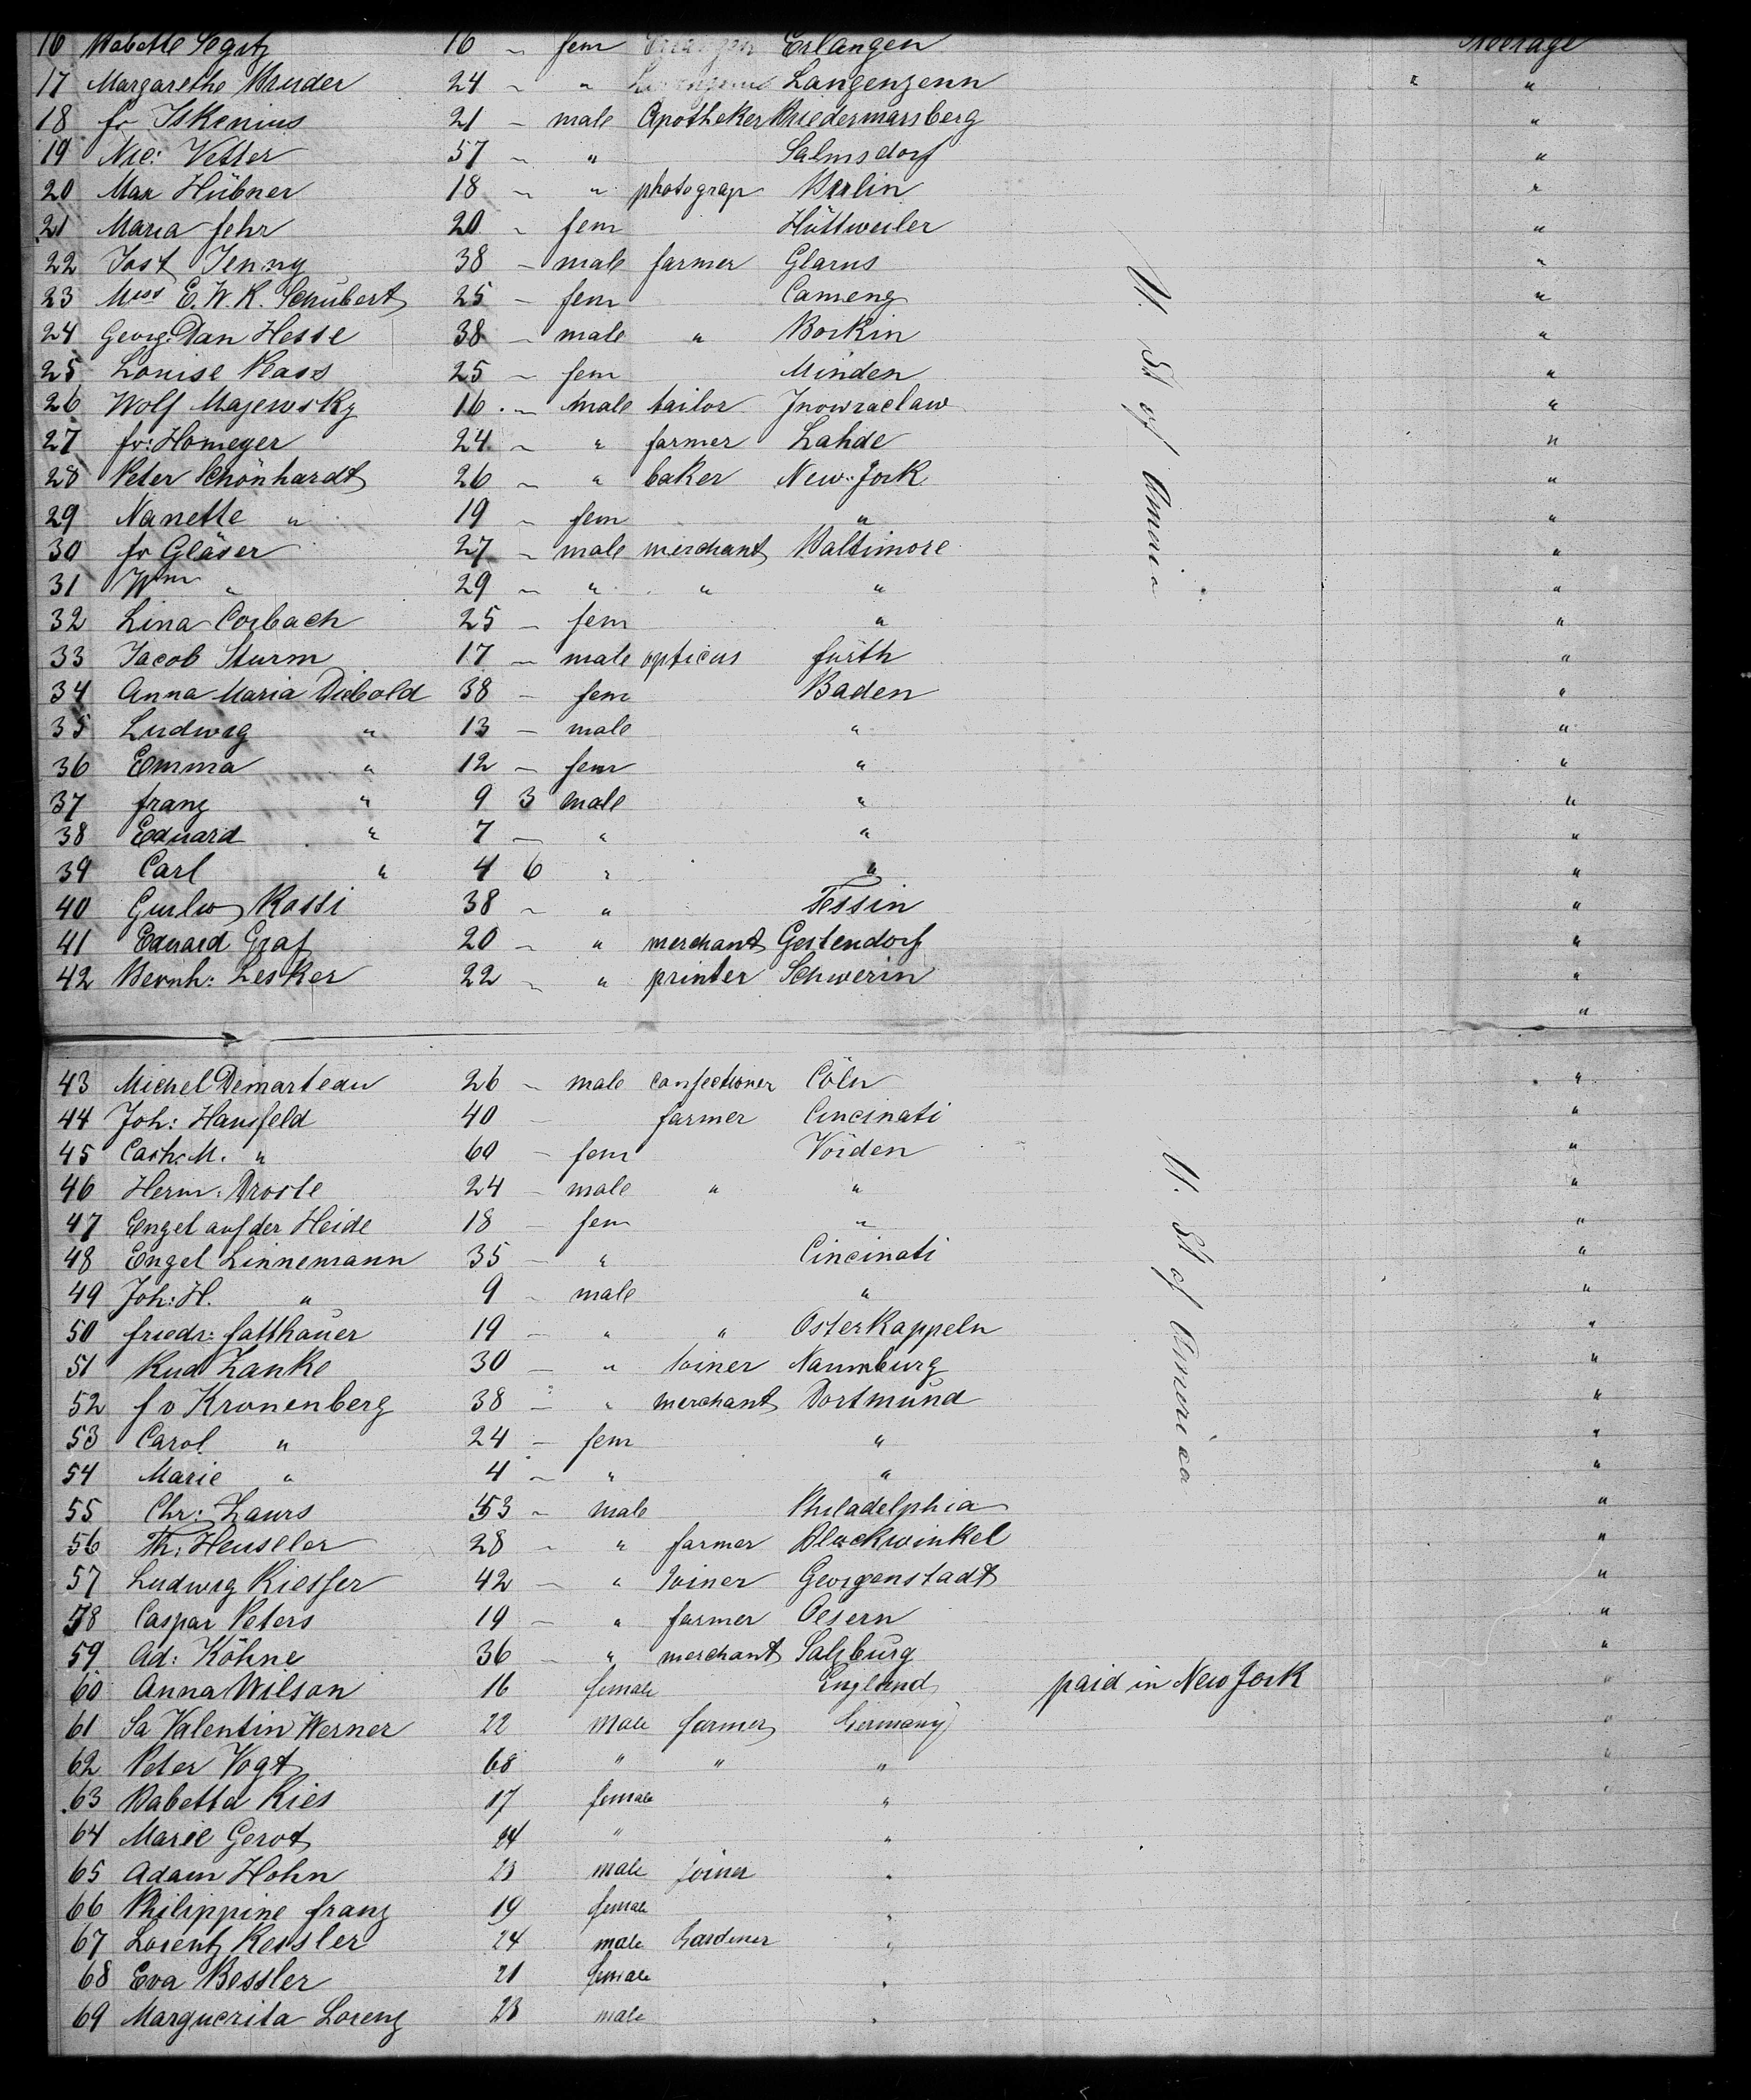 16 Babette Segitz 16 ~ fem Erlangen Erlangen Steerage
17 Margarethe Bruder 24 ~ " Langenzenn "
18 fr Iskenius 21 - male Apotheker Niedermarsberg "
19 Nic: Vetter 57 ~ " Salmsdorf "
20 Max Hübner 18 ~ " photograp Berlin "
21 Maria fehr 20 ~ fem Hüttweiler "
22 Jost Jenny 38 - male farmer Glarus "
23 Miss E. W. R. Schubert 25 - fem Cameng "
24 Georg: Dan Hesse 38 - male " Borkin "
25 Louise Rass 25 - fem Minden "
26 Wolf Majewsky 16 - male tailor Inowraclaw "
27 fr: Homeyer 24 ~ " farmer Lahde "
28 Peter Schönhardt 26 ~ " baker New-York "
29 Nanette " 19 - fem " "
30 fr Gläser 27 ~ male merchant Baltimore "
31 Wm " 29 ~ " " " "
32 Lina Corbach 25 - fem " "
33 Jacob Sturm 17 ~ male opticus fürth "
34 Anna Maria Diebold 38 - fem Baden "
35 Ludwig " 13 - male " "
36 Emma " 12 - fem " "
37 franz " 9 3 male " "
38 Eduard " 7 - " " "
39 Carl " 4 6 " " "
40 Rossi 38 ~ " Tessin "
41 Eduard Graf 20 - " merchant Gestendorf "
42 Bernh: Lesker 22 ~ " printer Schwerin "
"
U. St of America
43 Michel Demarteau 26 ~ male confectioner Cöln "
44 Joh: Hausfeld 40 - farmer Cincinati "
45 Cath. M. " 60 - fem Vörden "
46 Herm: Droste 24 - male " " "
47 Engel auf der Heide 18 - fem " "
48 Engel Linnemann 35 - " Cincinati "
49 Joh: H. " 9 ~ male " "
50 friedr: fatthauer 19 - " " Osterkappeln "
51 Rud Zanke 30 - " Joiner Naumburg "
52 f v Kronenberg 38 - " merchant Dortmund "
53 Carol " 24 - fem " "
54 Marie " 4 ~ " " "
55 Chr: Laurs 53 ~ male Philadelphia "
56 Th: Heuseler 28 ~ " farmer Blackwinkel "
57 Ludwig Riesser 42 - " Joiner Georgenstadt "
58 Caspar Peters 19 - " farmer Oesern "
59 Ad: Köhne 36 - " merchant Salzburg "
60 Anna Wilson 16 female England paid in New York "
61 Sa Valentin Werner 22 Male farmer Germany "
62 Peter Vogt 68 " " " "
63 Babetta Ries 17 female " "
64 Marie Gerot 24 " "
65 Adam Hohn 23 male Joiner "
66 Philippine franz 19 female "
67 Lorentz Kessler 24 male Gardener "
68 Eva Bessler 21 female "
69 Marguerita Lorenz 23 male "
U. St of America